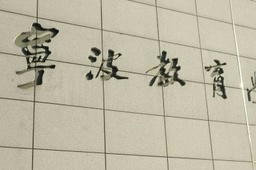 寧波教育